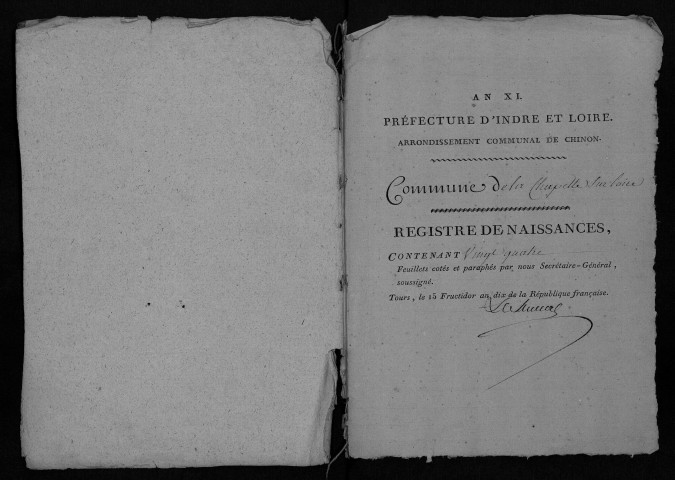 AN XI.
PRÉFECTURE D'INDRE ET LOIRE.
ARRONDISSEMENT COMMUNAL DE CHINON.
Commune de la Chapelle sur loire
REGISTRE DE NAISSANCES,
CONTENANT Vingt quatre
Feuillets cotés et paraphés par nous Secrétaire-Général,
soussigné.
Tours, le 15 Fructidor an dix de la République française.